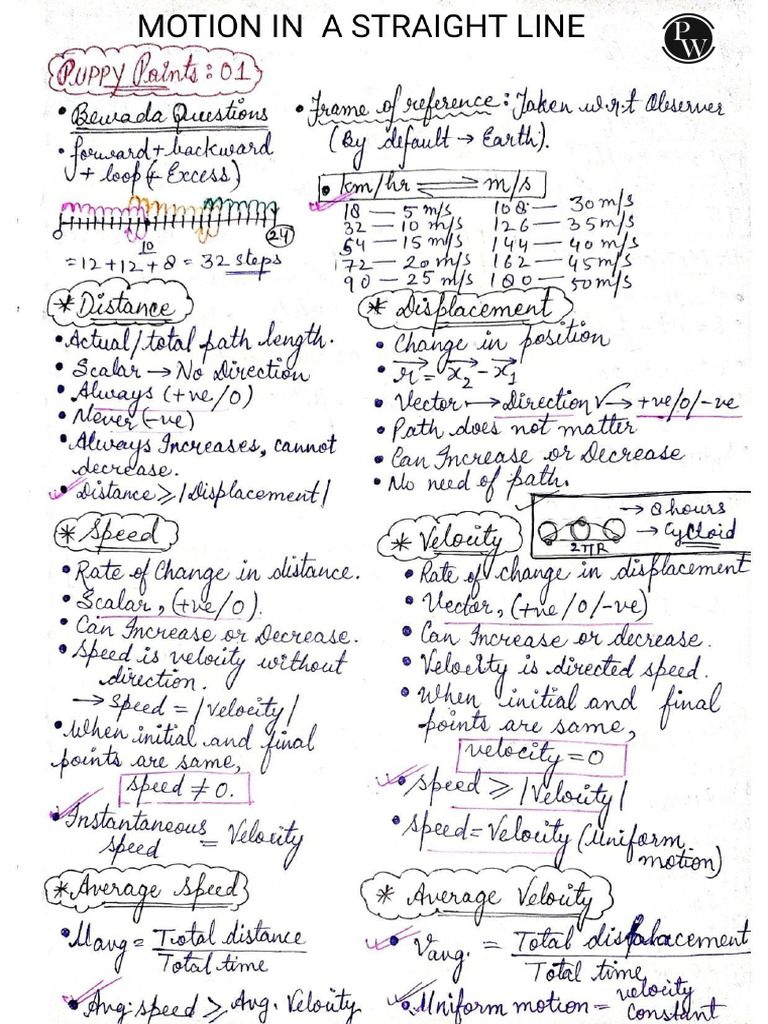 MOTION IN A STRAIGHT LINE
PW
PUPPY Points: 01
• Bewada Questions
• forward + backward
+ loop (+ Excess)
0 10 24
= 12 + 12 + 8 = 32 steps
• Frame of reference: Taken w.r.t Observer
(By default → Earth).
• km/hr ⇌ m/s
18 — 5 m/s 108 — 30 m/s
32 — 10 m/s 126 — 35 m/s
54 — 15 m/s 144 — 40 m/s
172 — 20 m/s 162 — 45 m/s
90 — 25 m/s 180 — 50 m/s
* Distance
• Actual/total path length.
• Scalar → No Direction
• Always (+ve/0)
• Never (-ve)
• Always Increases, cannot
decrease.
• Distance ≥ |Displacement|
* Displacement
• Change in position
• r⃗ = x⃗₂ - x⃗₁
• Vector ↦ Direction ✓ → +ve/0/-ve
• Path does not matter
• Can Increase or Decrease
• No need of path.
→ 8 hours
→ Cycloid
2πR
* Speed
• Rate of Change in distance.
• Scalar, (+ve/0).
• Can Increase or Decrease.
• Speed is velocity without
direction.
→ Speed = |Velocity|
• When initial and final
points are same,
speed ≠ 0.
• Instantaneous speed = Velocity
* Velocity
• Rate of change in displacement
• Vector, (+ve/0/-ve)
• Can Increase or decrease.
• Velocity is directed speed.
• When initial and final
points are same,
velocity = 0
• Speed ≥ |Velocity|
• Speed = Velocity (Uniform
motion)
* Average Speed
• Uavg = Total distance
Total time
• Avg. speed ≥ Avg. Velocity
* Average Velocity
• Vavg. = Total displacement
Total time
• Uniform motion = velocity
constant